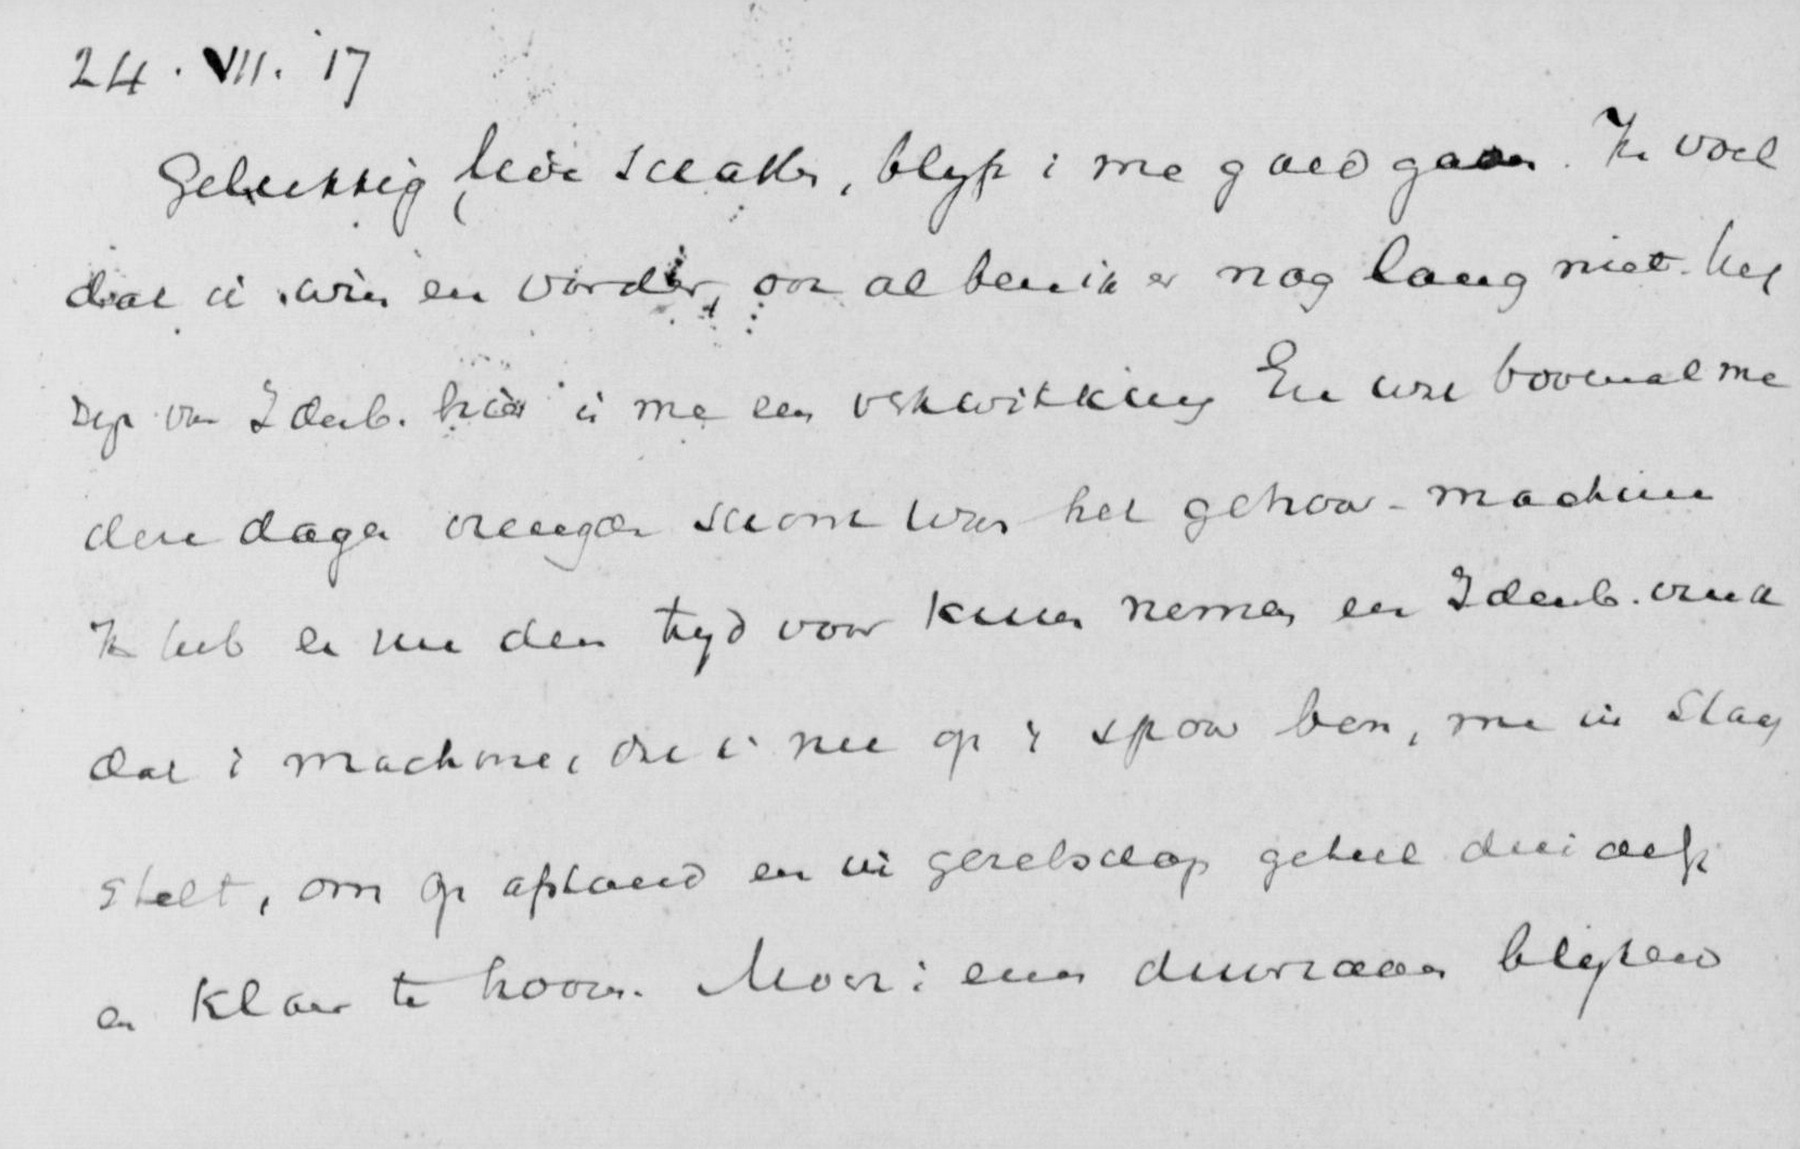 24. VII. '17
Gelukkig, lieve schatten, blyft i me goed gaan. Ik voel
dat ik win en vorder, ook al ben ik er nog lang niet. Het
van Idenb. hier is me een verkwikking En wat bovenal me
deze dagen schonk was het gehoor-machine
Ik heb er nu den tyd voor kunnen nemen en Idenb. vindt
dat i machine, die i nu op 't spoor ben, me in staat
stelt, om op afstand en in gezelschap geheel
en klaar te hooren. Moest i eens duurzaam blykend